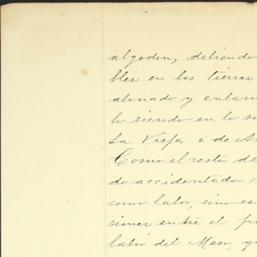 algodon, debiendo
bles en las tierras
abonado y
lo siendo en lo su
La Vieja ó de
Como el resto de
do accidentado
como labor, sino es
entre el
labor del Mesn, qu